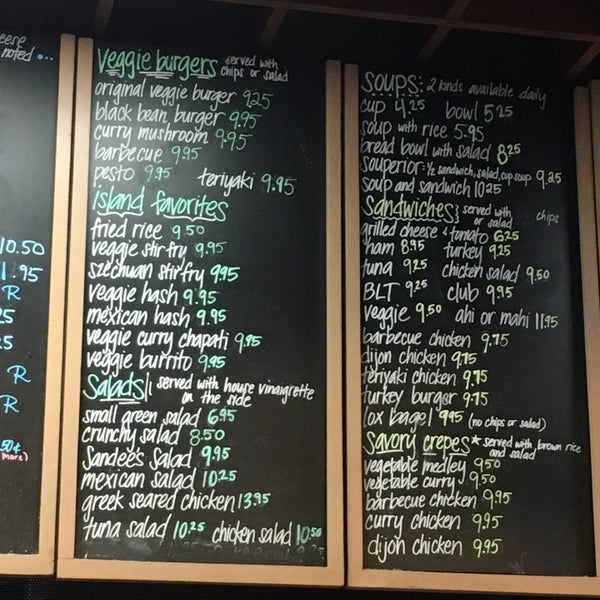 eese
noted...
10.50
1.95
R
25
5
R
R
50¢
more)
Veggie burgers served with
chips or salad
original veggie burger 9.25
black bean burger 9.95
curry mushroom 9.95
barbecue 9.95
pesto 9.95 teriyaki 9.95
island favorites
fried rice 9.50
veggie stir fry 9.95
szechuan stir fry 9.95
veggie hash 9.95
mexican hash 9.95
veggie curry chapati 9.95
veggie burrito 9.95
Salads served with house vinaigrette
on the side
small green salad 6.95
crunchy salad 8.50
Sandee's salad 9.95
mexican salad 10.25
greek seared chicken 13.95
tuna salad 10.25 chicken salad 10.50
SOUPS: 2 kinds available daily
cup 4.25 bowl 5.25
soup with rice 5.95
bread bowl with salad 8.25
souperior: ½ sandwich, salad, cup soup 9.25
soup and sandwich 10.25
Sandwiches served with chips
or salad
grilled cheese & tomato 6.25
ham 8.95 turkey 9.25
tuna 9.25 chicken salad 9.50
BLT 9.25 club 9.95
veggie 9.50 ahi or mahi 11.95
barbecue chicken 9.75
dijon chicken 9.75
teriyaki chicken 9.75
turkey burger 9.75
lox bagel 9.95 (no chips or salad)
Savory crepes * served with brown rice
and salad
vegetable medley 9.50
vegetable curry 9.50
barbecue chicken 9.95
curry chicken 9.95
dijon chicken 9.95